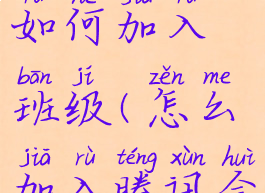 如何加入
bān jí zěn me
班级(怎么
jiā rù téng xùn huì
加入腾讯会